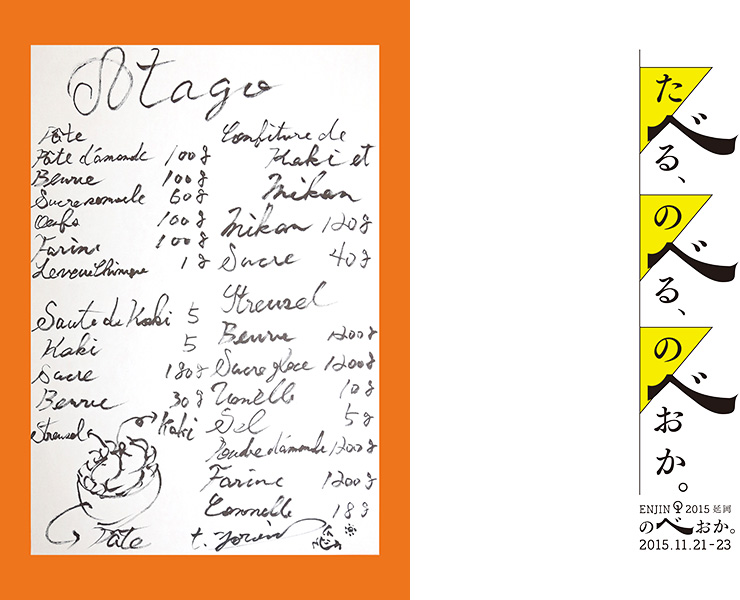 Atago
Pâte
Pâte d'amande 100g
Beurre 100g
Sucre semoule 60g
Oeufs 100g
Farine 100g
Levure Chimique 1g
Saute de Kaki 5
Kaki 5
Sucre 180g
Beurre 30g
Streusel
Kaki
Pâte
Confiture de
Kaki et
Mikan
Mikan 120g
Sucre 40g
Streusel
Beurre 1200g
Sucre glace 1200g
Vanille 10g
Sel 5g
Poudre d'amande 1200g
Farine 1200g
Cannelle 18g
たべる、
のべる、
のべおか。
ENJIN 2015 延岡
のべおか。
2015.11.21-23